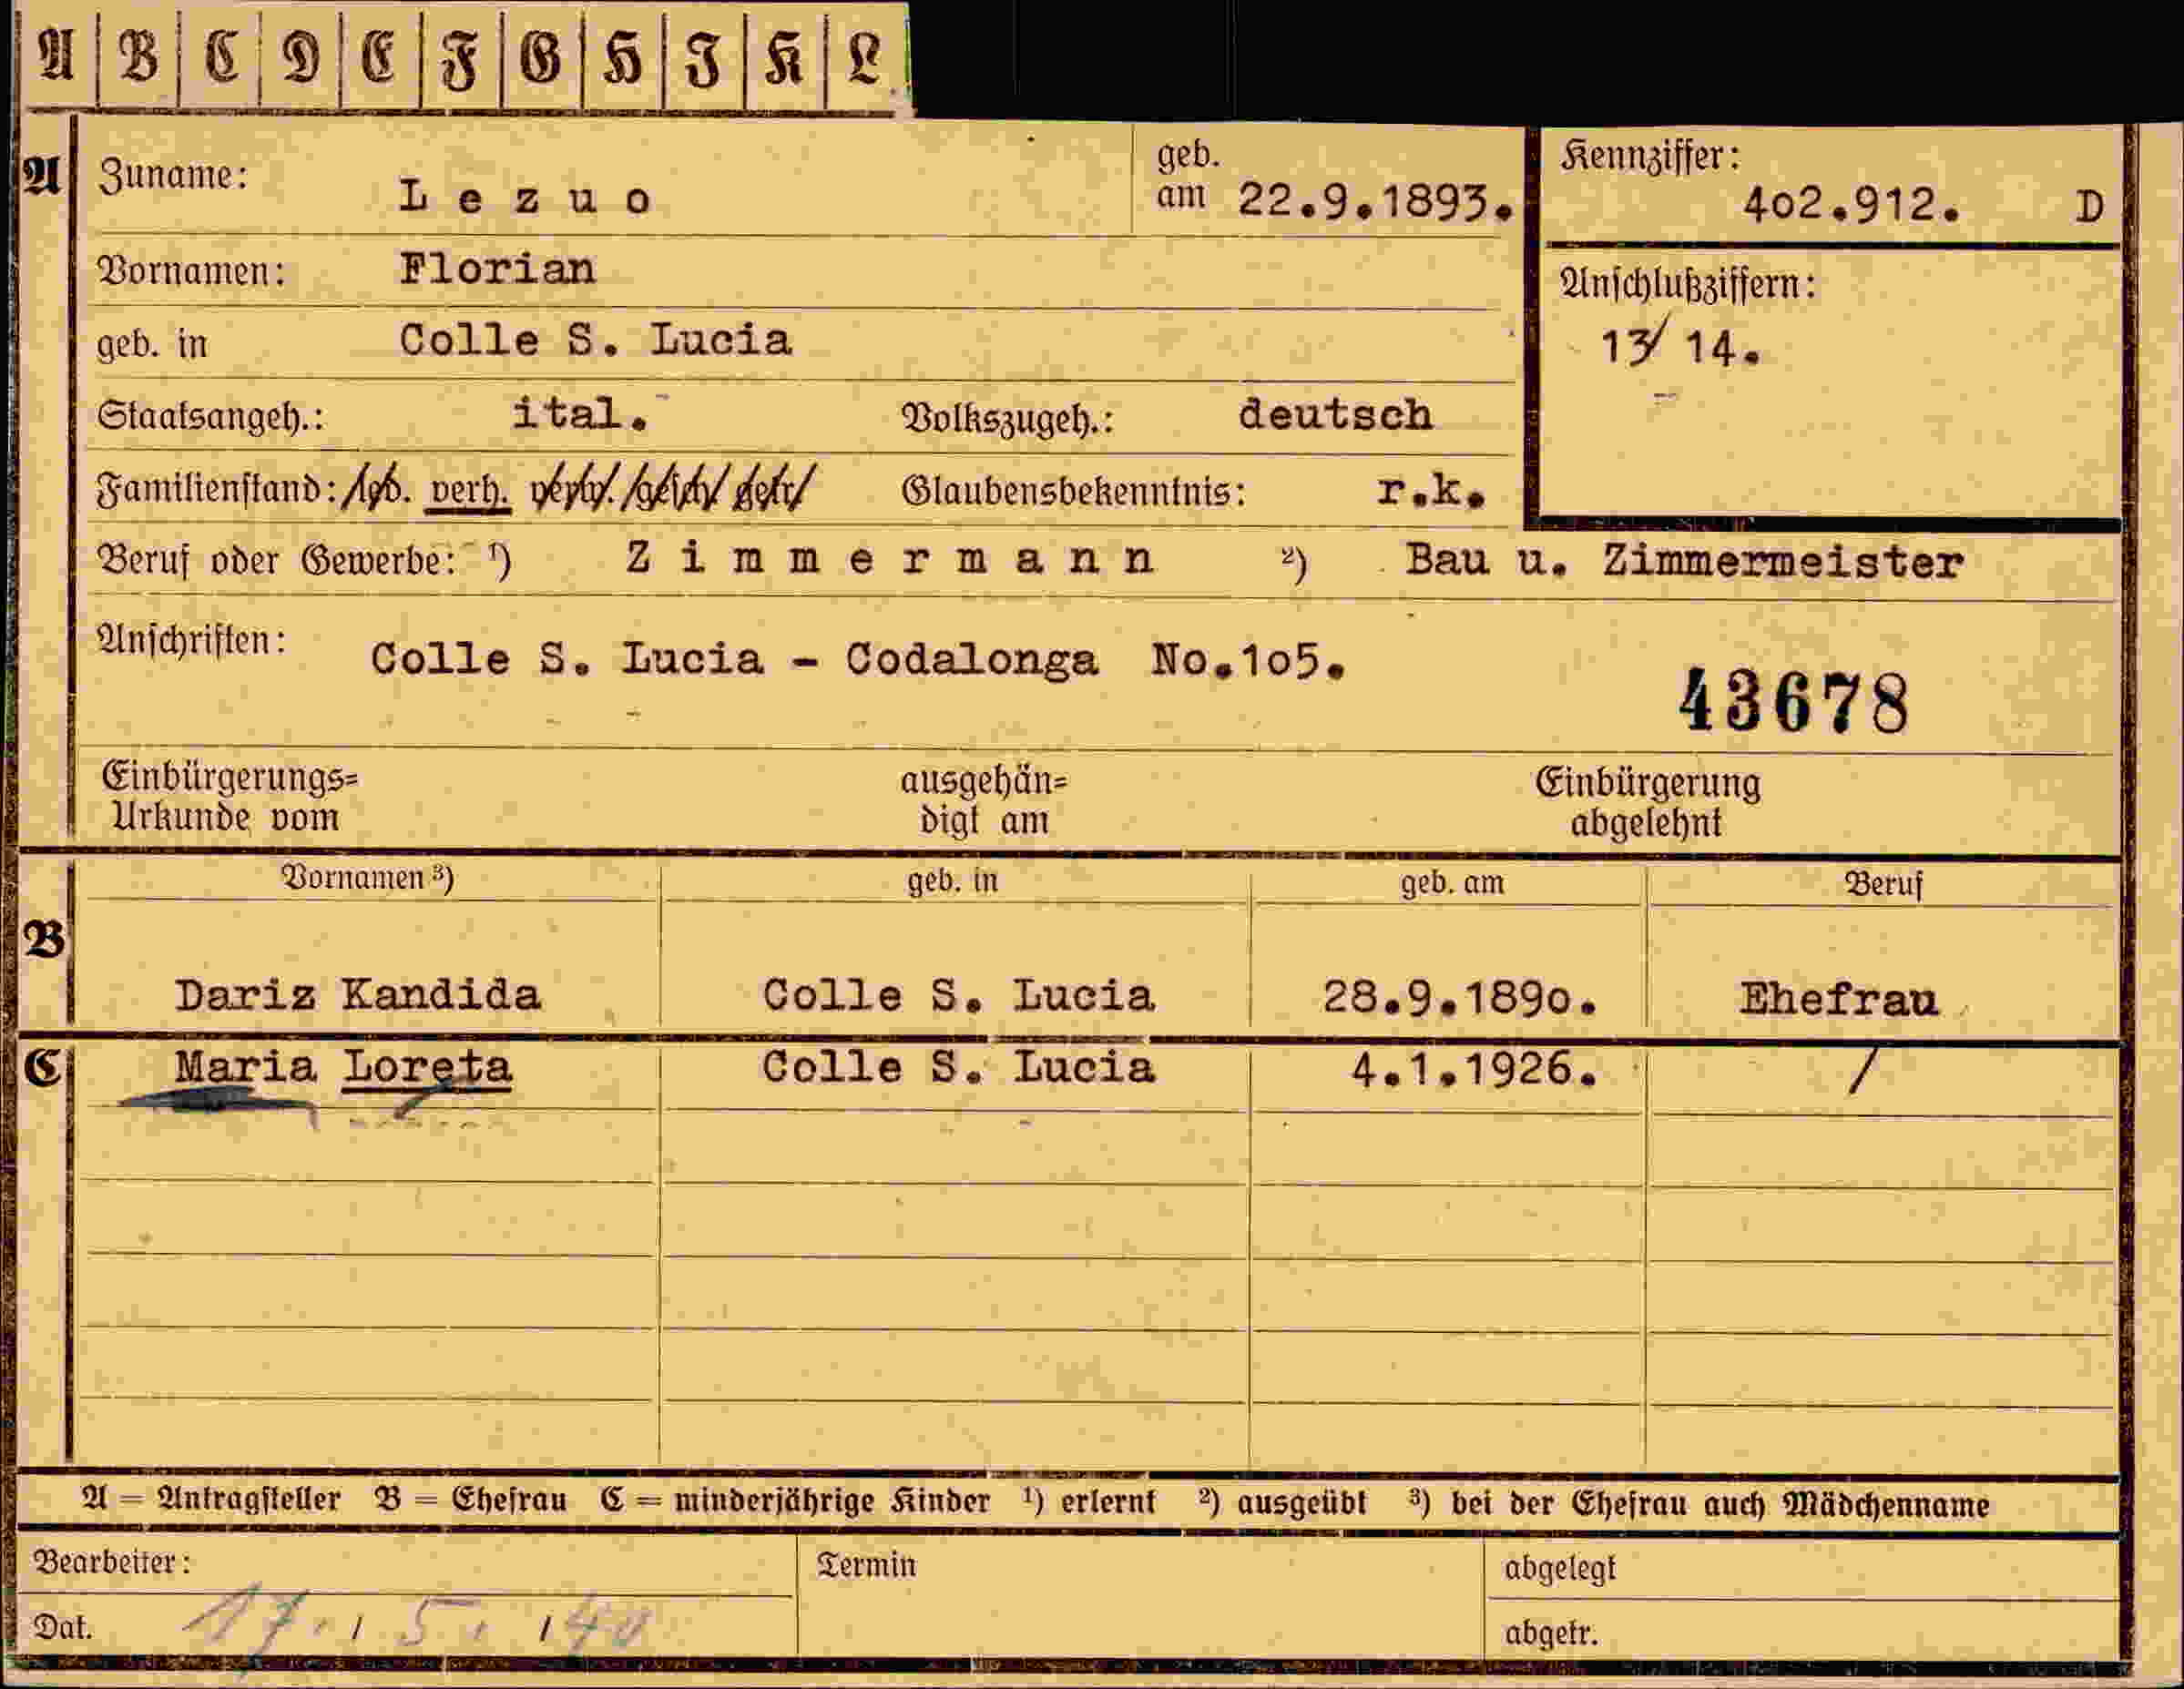 A B C D E F G H I K L
A Zuname: Lezuo geb. am 22.9.1893. Kennziffer: 402.912. D
Vornamen: Florian
Anschlußziffern:
geb. in Colle S. Lucia 13/ 14.
Staatsangeh.: ital. Volkszugeh.: deutsch
Familienstand: led. verh. verw. gesch. getr. Glaubensbekenntnis: r.k.
Beruf oder Gewerbe: ¹) Zimmermann ²) Bau u. Zimmermeister
Anschriften: Colle S. Lucia - Codalonga No.105.
43678
Einbürgerungs= ausgehän= Einbürgerung
Urkunde vom digt am abgelehnt
Vornamen ³) geb. in geb. am Beruf
B
Dariz Kandida Colle S. Lucia 28.9.1890. Ehefrau
C Maria Loreta Colle S. Lucia 4.1.1926. /
A = Antragsteller B = Ehefrau C = minderjährige Kinder ¹) erlernt ²) ausgeübt ³) bei der Ehefrau auch Mädchenname
Bearbeiter: Termin abgelegt
Dat. 17. 5. 40 abgetr.